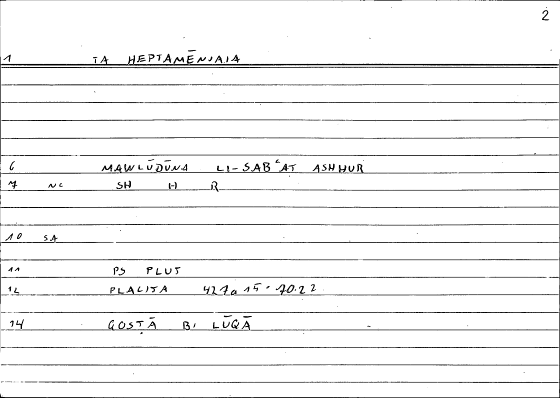 2
1 TA HEPTAMĒNIAIA
6 MAWLŪDŪNA LI-SABʿAT ASHHUR
7 NC SH H R
10 SA
11 PS PLUT
12 PLACITA 427a 15-
14 QOSṬĀ B. LŪQĀ